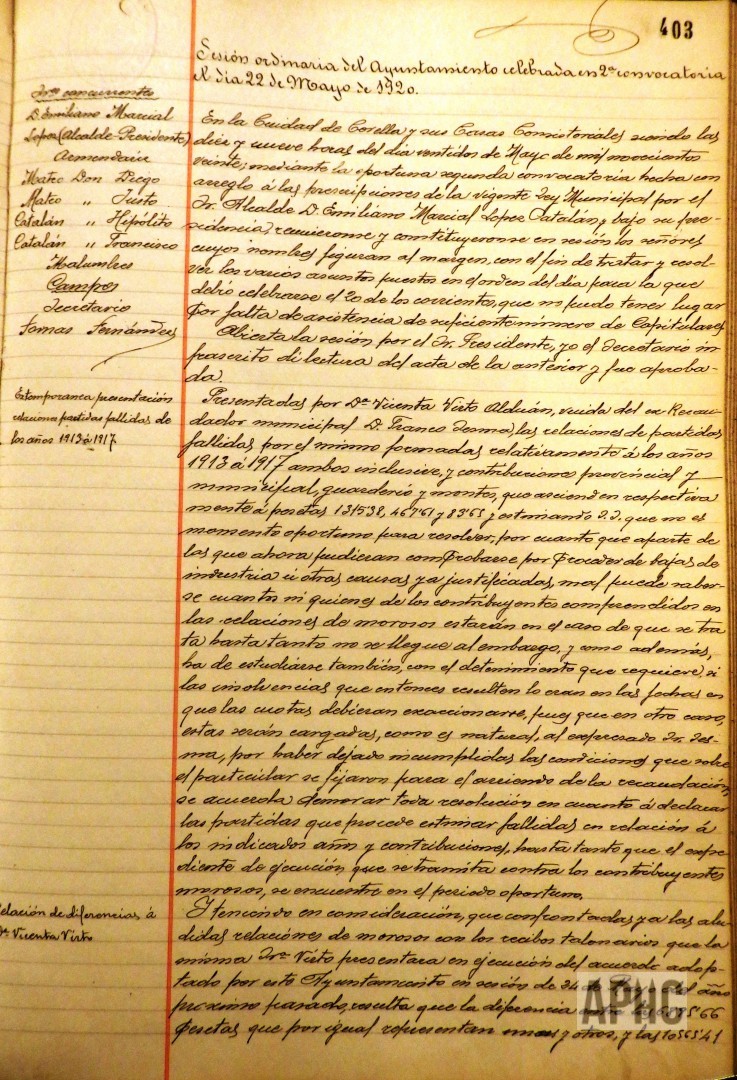 403
Sesión ordinaria del Ayuntamiento celebrada en 2ª convocatoria
el dia 22 de Mayo de 1920.
Sres concurrentes
D. Emiliano Marcial
Lopez (Alcalde-Presidente)
Armendariz
Mateo Don Diego
Mateo „ Justo
Catalán „ Hipólito
Catalán „ Francisco
Malumbres
Campos
Secretario
Tomas Fernández
En la Ciudad de Corella y sus Casas Consistoriales siendo las
diez y nueve horas del dia ventidos de Mayo de mil novecientos
veinte; mediante la oportuna segunda convocatoria hecha con
arreglo á las prescripciones de la vigente Ley Municipal por el
Sr. Alcalde D. Emiliano Marcial Lopez Catalán, bajo su pre-
sidencia, reunieronse y constituyeronse en sesión los señores
cuyos nombres figuran al margen, con el fin de tratar y resol-
ver los varios asuntos puestos en el orden del dia para la que
debió celebrarse el 20 de los corrientes, que no pudo tener lugar
por falta de asistencia de suficiente número de Capitulares
Abierta la sesión por el Sr. Presidente, yo el Secretario in-
frascrito di lectura del acta de la anterior y fue aproba-
da.
Extemporanea presentación
relaciones partidas fallidas de
los años 1913 á 1917
Presentadas por Dª Vicenta Virto Alduán, viuda del ex-Recau-
dador municipal D. Franco Sesma, las relaciones de partidas
fallidas por el mismo formadas relativamente á los años
1913 á 1917 ambos inclusive, y contribuciones provincial y
municipal, guarderio y montes, que ascienden respectiva
mente á pesetas y estimando S.S. que no es
momento oportuno para resolver, por cuanto que aparte de
las que ahora pudieran comprobarse por proceder de bajas de
industria ú otras causas ya justificadas, mal puede saber-
se cuantos ni quienes de los contribuyentes comprendidos en
las relaciones de morosos estarán en el caso de que se tra
ta hasta tanto no se llegue al embargo, y como además,
ha de estudiarse también, con el detenimiento que requiere, si
las insolvencias que entonces resulten lo eran en las fechas en
que las cuotas debieran exaccionarse, pues que en otro caso,
estas serán cargadas, como es natural, al expresado Sr. Ses-
ma, por haber dejado incumplidas las condiciones que sobre
el particular se fijaron para el arriendo de la recaudación,
se acuerda demorar toda resolución en cuanto á declarar
las partidas que procede estimar fallidas en relación á
los indicados años y contribuciones, hasta tanto que el expe
diente de ejecución que se tramita contra los contribuyentes
morosos, se encuentre en el periodo oportuno.
elación de diferencias á
Dª Vicenta Virto
Y teniendo en consideración, que confrontadas ya las alu-
didas relaciones de morosos con los recibos talonarios que la
misma Sra Virto presentara en ejecución del acuerdo adop-
tado por este Ayuntamiento en sesión de año
próximo pasado, resulta que la diferencia
pesetas que por igual representan unas y otros, y las
APHC